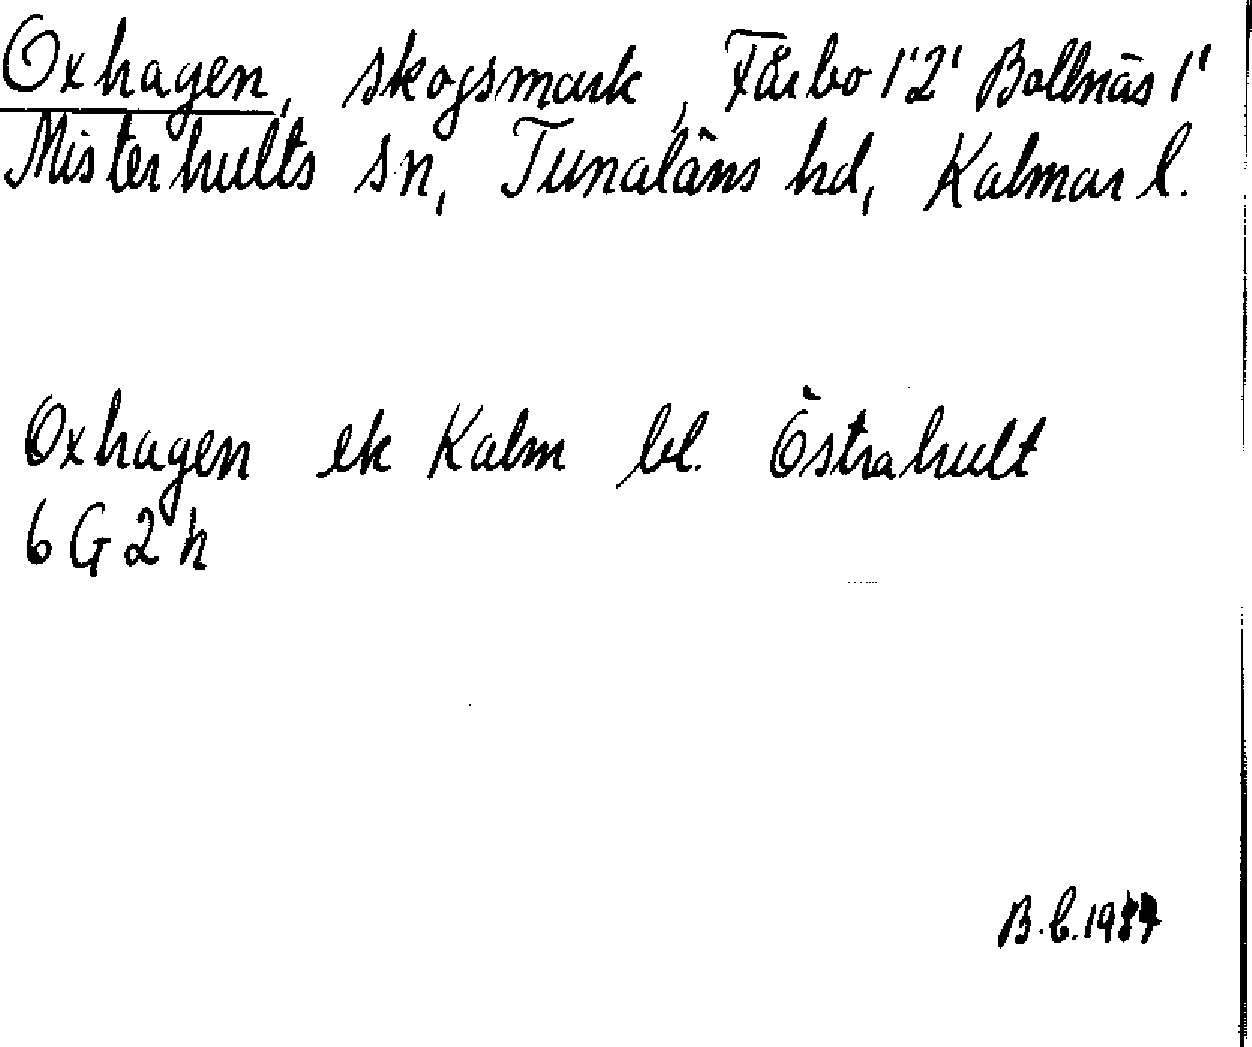 Oxhagen, skogsmark, Fårbo 1'2' Bollnäs 1'
Misterhults sn, Tunaläns hd, Kalmar l.
Oxhagen ek Kalm bl. Östrahult
6 G 2 h
B.C.1987